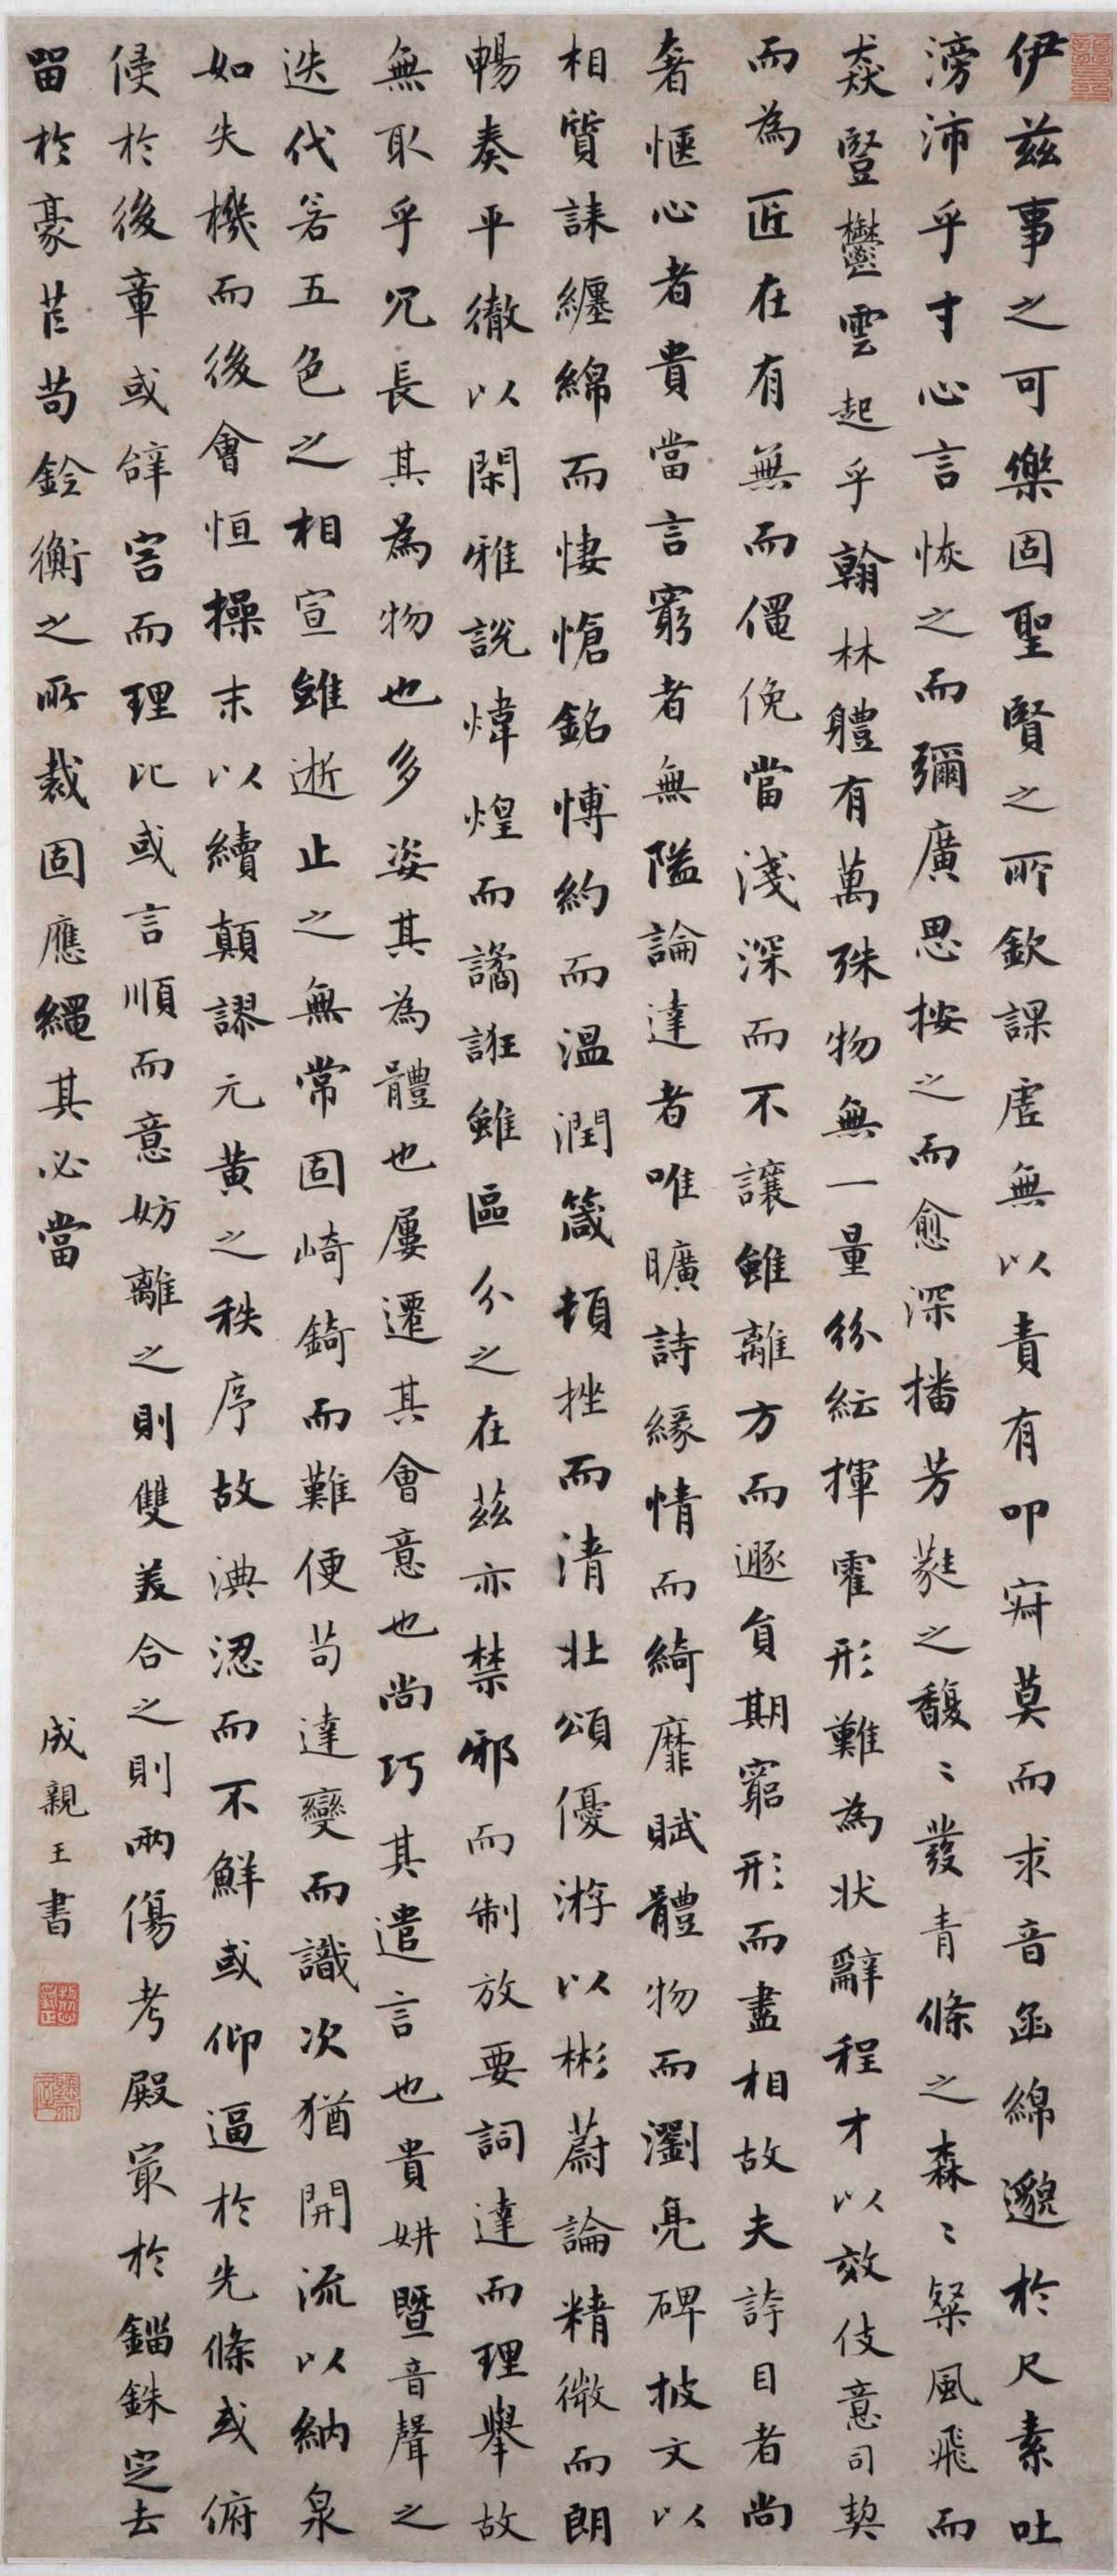 伊茲事之可樂固聖賢之所欽課虛無以責有叩寂莫而求音函綿邈於尺素吐
滂沛乎寸心言恢之而彌廣思按之而愈深播芳蕤之馥〻發青條之森〻粲風飛而
猋豎鬱雲起乎翰林體有萬殊物無一量紛紜揮霍形難為狀辭程才以效伎意司契
而為匠在有無而僶俛當淺深而不讓雖離方而遯員期窮形而盡相故夫誇目者尚
奢愜心者貴當言窮者無隘論達者唯曠詩緣情而綺靡賦體物而瀏亮碑披文以
相質誄纏綿而悽愴銘博約而溫潤箴頓挫而清壯頌優游以彬蔚論精微而朗
暢奏平徹以閑雅說煒煌而譎誑雖區分之在茲亦禁邪而制放要詞達而理舉故
無取乎冗長其為物也多姿其為體也屢遷其會意也尚巧其遣言也貴妍暨音聲之
迭代若五色之相宣雖逝止之無常固崎錡而難便苟達變而識次猶開流以納泉
如失機而後會恒操末以續顛謬元黃之秩序故淟涊而不鮮或仰逼於先條或俯
侵於後章或辭害而理比或言順而意妨離之則雙美合之則兩傷考殿最於錙銖定去
留於豪芒苟銓衡之所裁固應繩其必當
成親王書